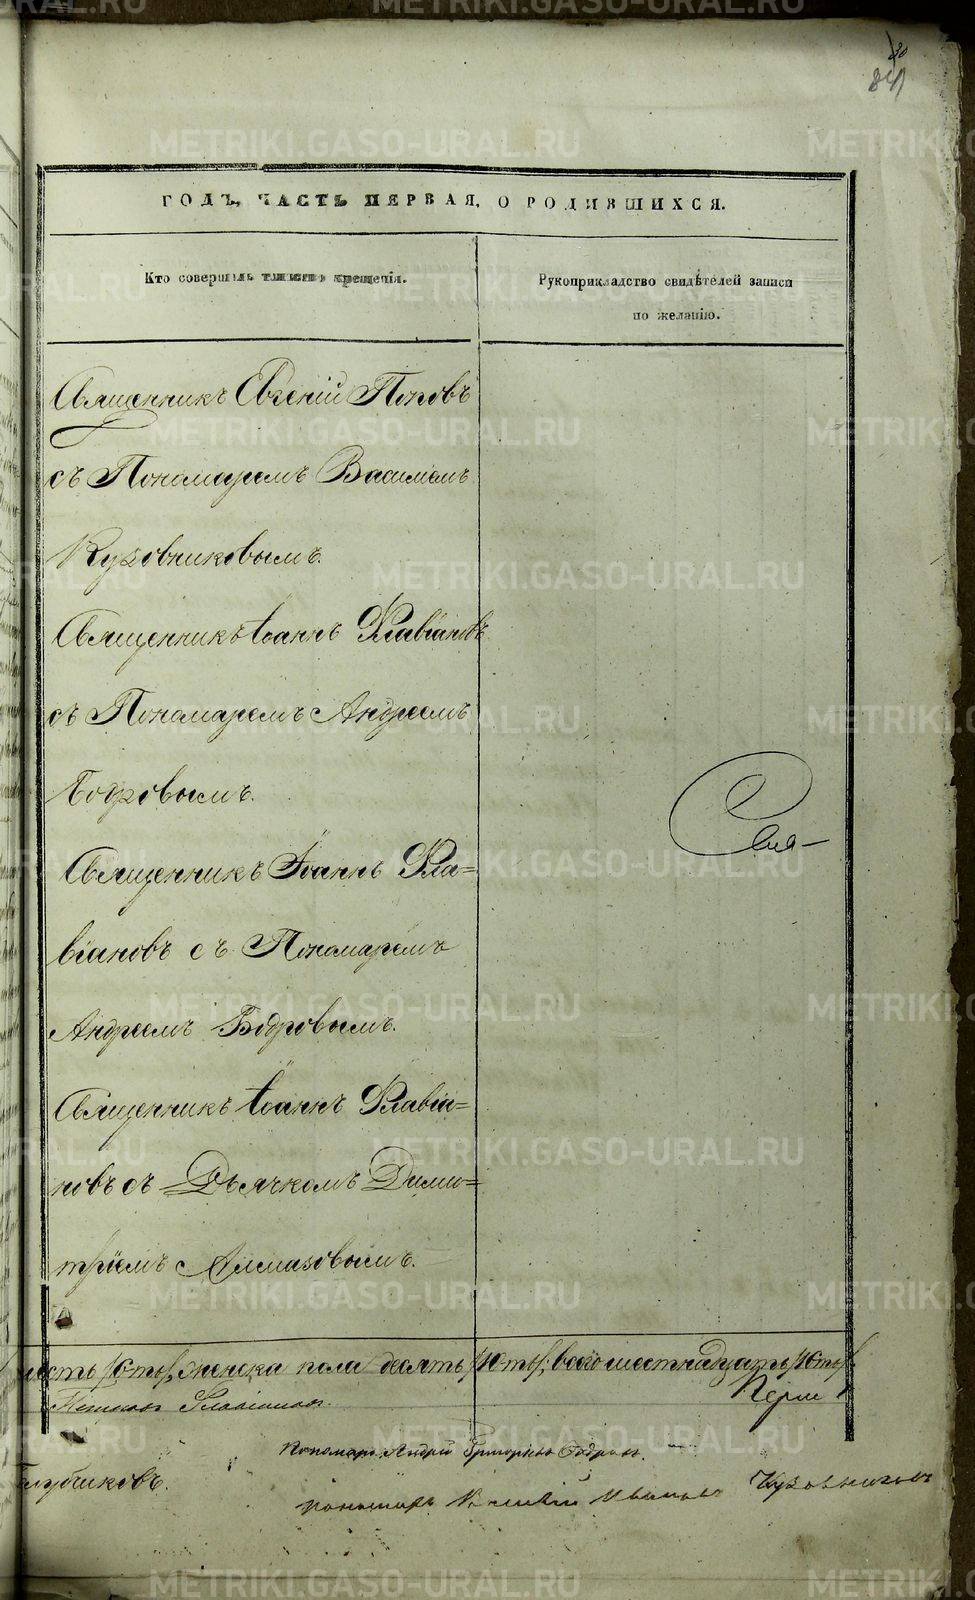 30
ГОДЪ, ЧАСТЬ ПЕРВАЯ, О РОДИВШИХСЯ.
Кто совершалъ таинство крещенія.
Рукоприкладство свидѣтелей записи
по желанію.
Священникъ Евгеній Поповъ
съ Пономаремъ Василіемъ
Кузовниковымъ.
Священникъ Іоаннъ Флавіановъ
съ Пономаремъ Андреемъ
Бобровымъ.
Священникъ Іоаннъ Фла=
віановъ съ Пономаремъ
Андреемъ Бобровымъ.
Священникъ Іоаннъ Флавіа=
новъ съ Дьячкомъ Дими=
тріемъ Алмазовымъ.
шесть /6-ть/, женска пола десять /10-ть/, всего шестнадцать /16-ть/.
Флавіановъ
Пономарь Андрей Бобровъ.
Пономарь Василій Ивановъ Кузовниковъ
METRIKI.GASO-URAL.RU